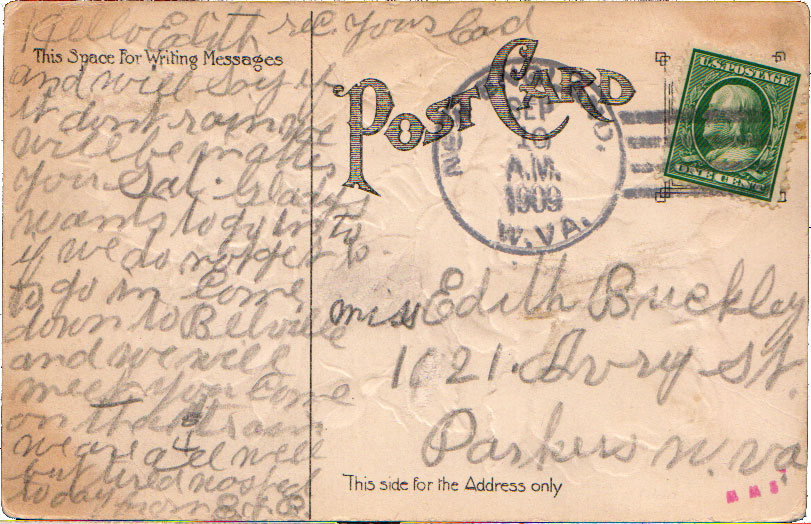 Hello Edith rec. yous Cad
This Space For Writing Messages
and will say if
it dont rain we
will be in after
you Sat. Gladys
wants to go in to
if we do not get
to go in Come
down to Belville
and we will
meet you Come
on that train
we are all well
but tired
today from
POST CARD
SEP
10
A.M.
1909
W. VA.
U.S. POSTAGE
ONE CENT
Miss Edith Buckley
1021. Avry St.
Parkers W. Va
This side for the Address only